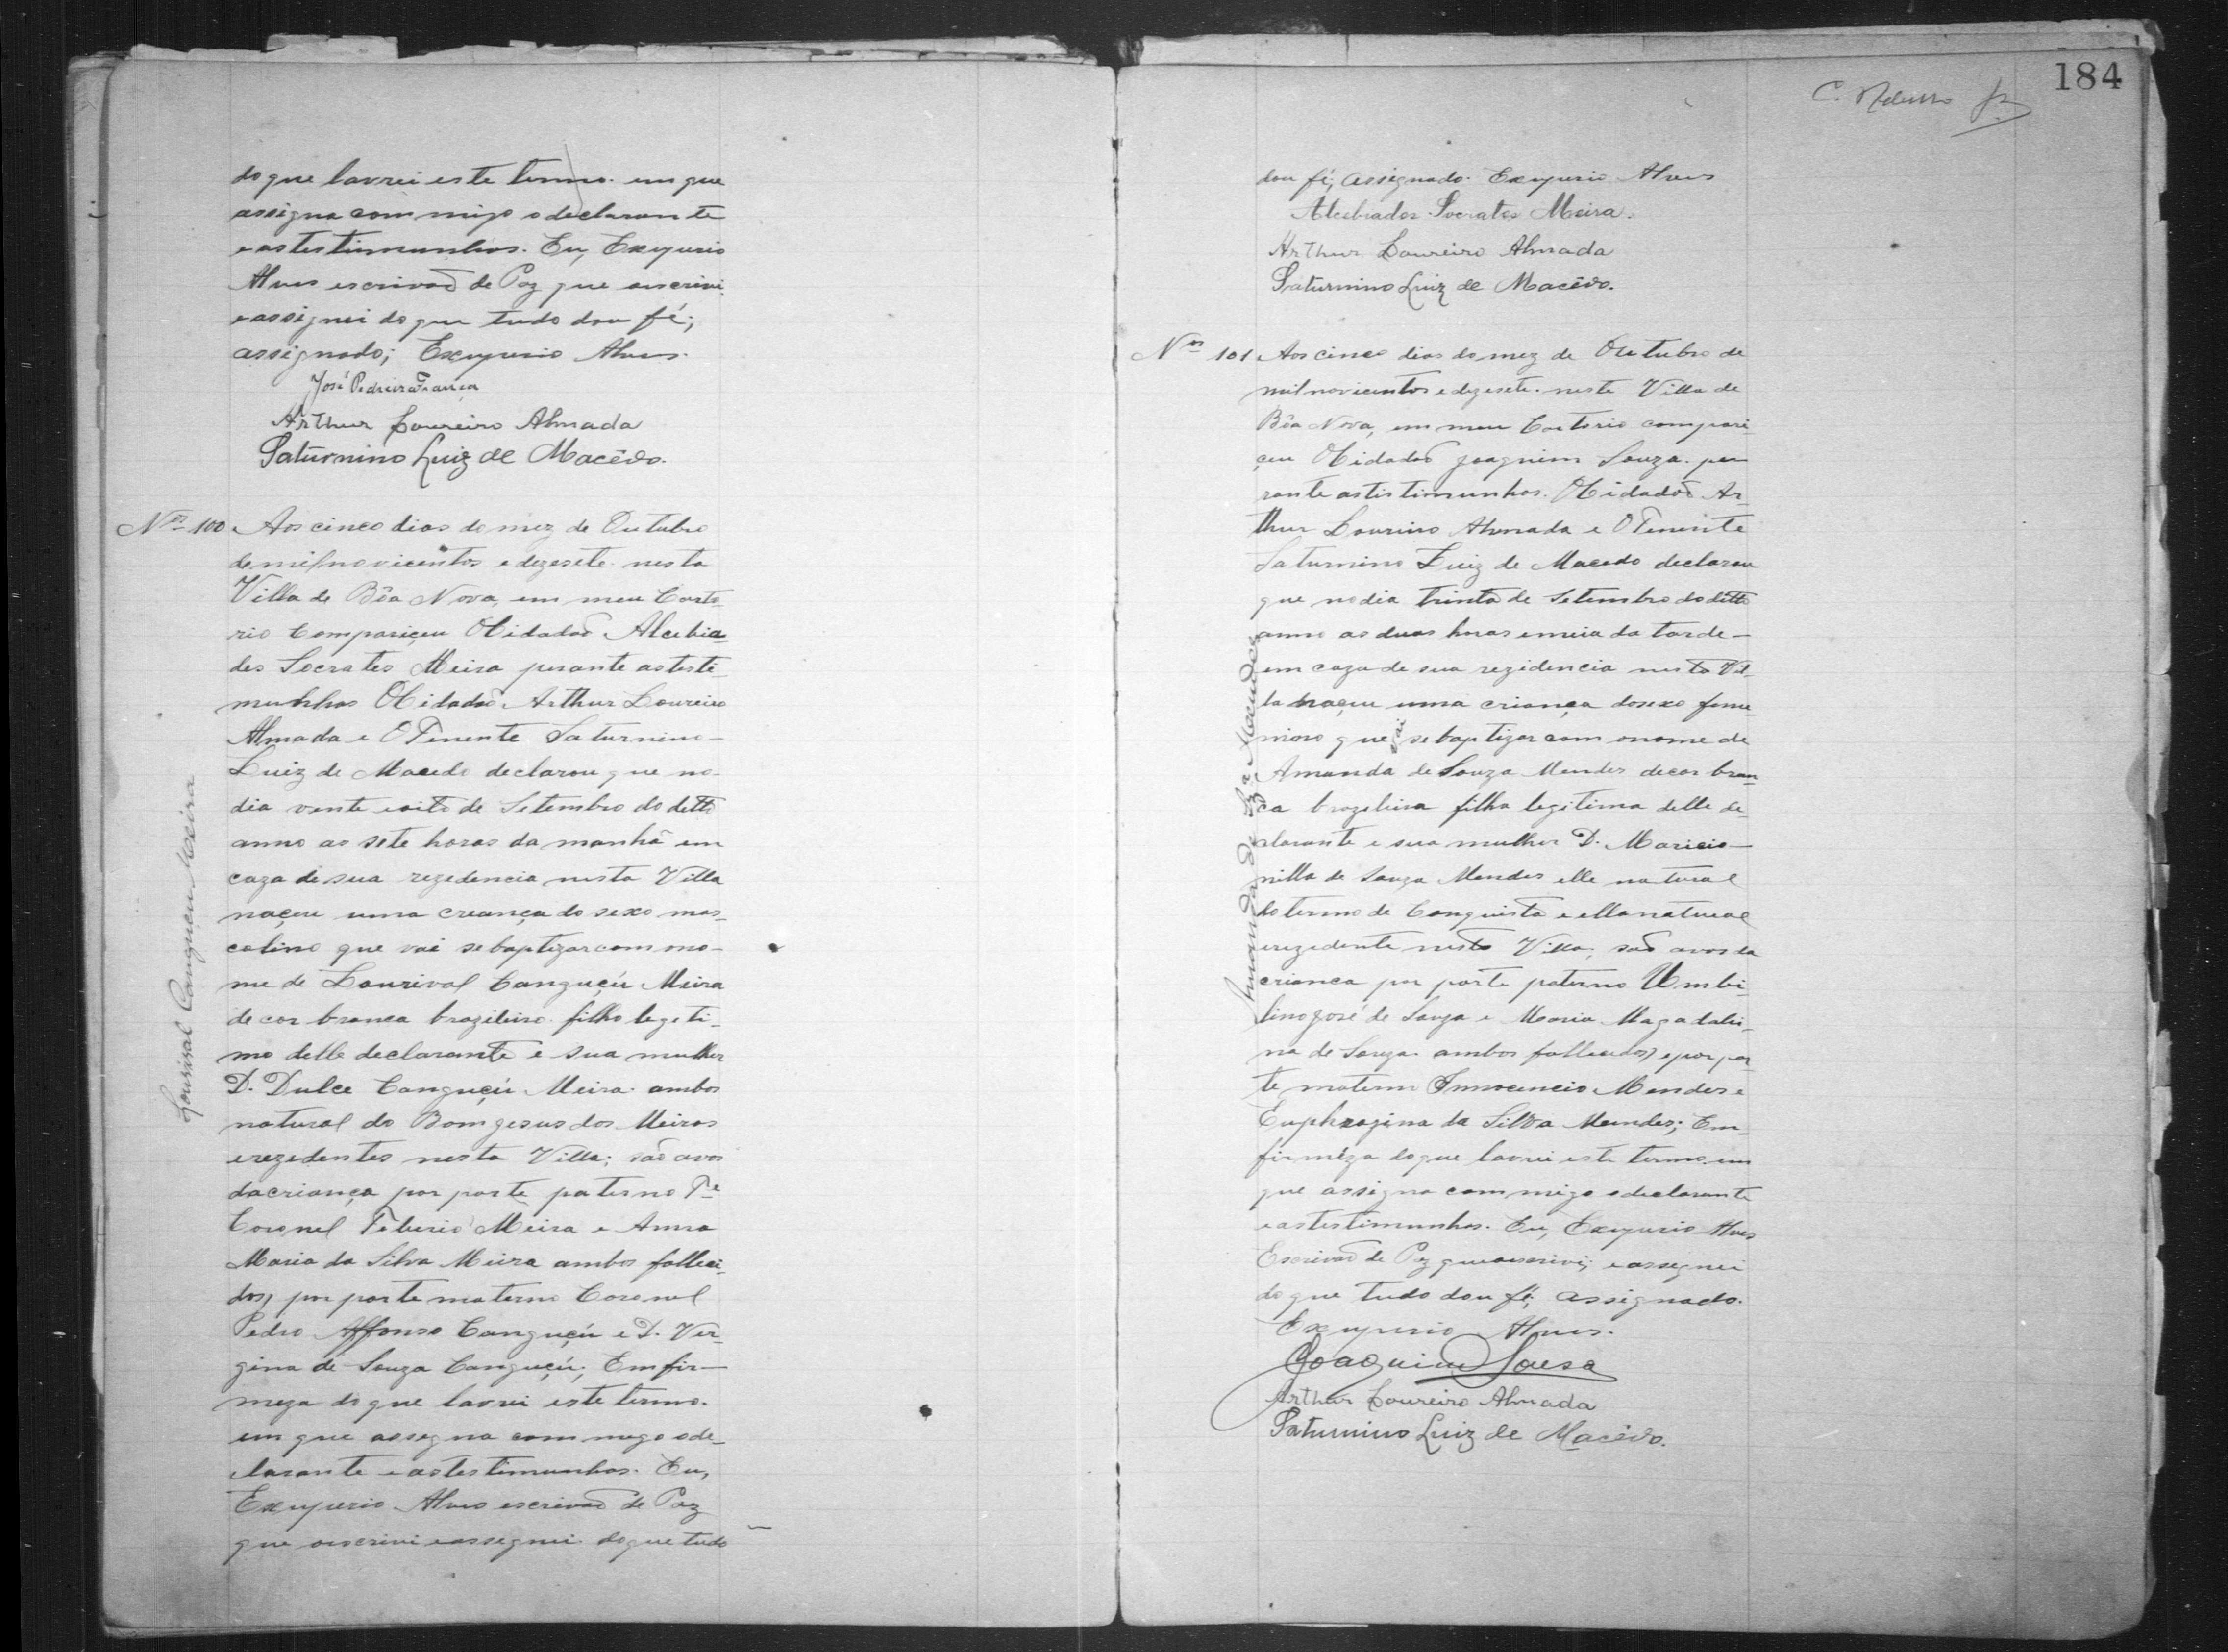 do que lavrei este termo em que
assigna com migo o declarante
e as testimunhos. Eu, Exuperio
Alves escrivaõ de Paz que escrivi
e assignei do que tudo dou fé;
assignado; Exuperio Alves.
José Pedreira França
Arthur Loureiro Almada
Saturnino Luiz de Macêdo.
Nº 100 Aos cinco dias do mez de Outubro
de mil novicentos e dezesete nesta
Villa de Bôa Nova, em meu Carto-
rio Compariçeu O Cidadaõ Alcebia-
des Socrates Meira perante as testi-
munhhas O Cidadaõ Arthur Loureiro
Almada e O Tenente Saturnino-
Luiz de Macedo declarou que no-
dia vente e oito de Setembro do detto
anno as sete horas da manhã em
caza de sua rezedencia nesta Villa
naçeu uma creança do sexo mas-
colino que vai se baptizar com o no-
me de Lourival Canguçú Meira
de cor branca brazileiro filho legeti-
mo delle declarante e sua mulher
D. Dulce Canguçú Meira ambos
natural do Bom gesus dos Meiras
e rezedentes nesta Villa; saõ avos
da criança por parte paterno Te
Coronel Teberio Meira e Anna
Maria da Silva Meira ambos falleci-
dos, por parte materno Coronel
Pedro Affonso Canguçú e D. Ver-
gina de Souza Canguçú; Em fir-
meza do que lavrei este termo.
em que assegna com mego o de-
clarante e as testimunhas. Eu,
Exuperio Alves escrivaõ de Paz
que escrivi e assegnei do que tudo
Lourival Canguçu Meira
184
C. Jr.
dou fé, assignado. Exuperio Alves
Alcebiades Socrates Meira.
Arthur Loureiro Almada
Saturnino Luiz de Macêdo.
Nº 101 Aos cinco dias do mez de Outubro de
mil novicentos e dezesete neste Villa de
Bôa Nova, em meu Cartorio compari-
çeu O Cidadaõ Joaquim Souza pe-
rante as tistimunhas. O Cidadaõ Ar-
thur Loureiro Almada e O Tenente
Saturnino Luiz de Macedo declarou
que no dia trinta de Setembro do detto
anno as duas horas e meia da tarde-
em caza de sua rezidencia nesta Vil-
la naçeu uma criança do sexo feme-
nino que vai se baptizar com o nome de
Amanda de Souza Mendes de cor bran-
ca brazileira filha legitima delle de-
clarante e sua mulher D. Maricio-
nilla de Souza Mendes elle natural
do termo de Conquista e ella natural
e rezedente nesta Villa; saõ avos da
crianca por parte paterno Umbi-
lino José de Souza e Maria Magadali-
na de Souza ambos fallecidos, e por par-
te materno Innocencio Mendes e
Euphrazina da Silva Mendes; Em
firmêza do que lavrei este termo em
que assigna com migo o declarante
e as testimunhas. Eu, Exuperio Alves
Escrivaõ de Paz que escrivi; e assegnei
do que tudo dou fé, assignado.
Exuperio Alves.
Joaquim Sousa
Arthur Loureiro Almada
Saturnino Luiz de Macêdo.